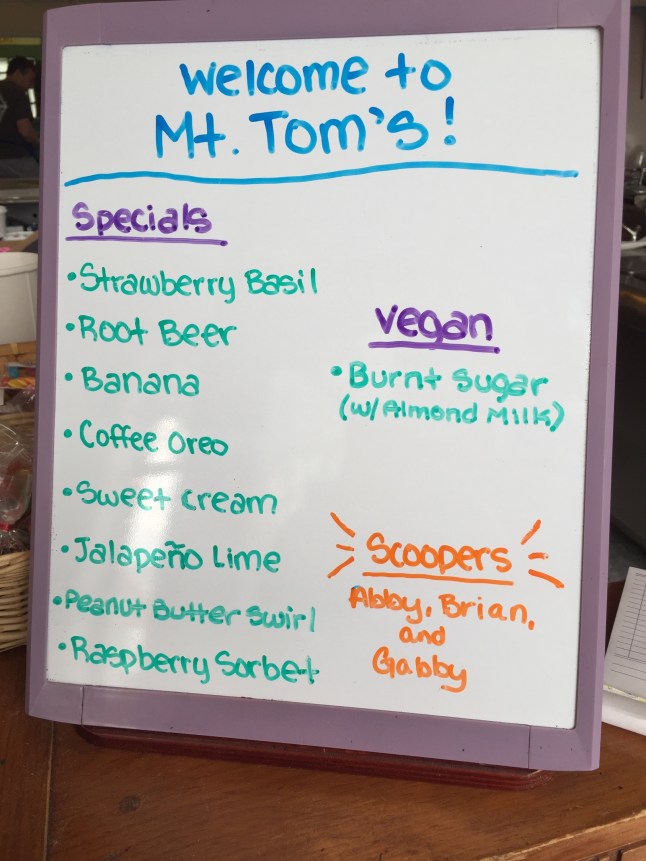 Welcome to
Mt. Tom's!
Specials
•Strawberry Basil
•Root Beer
•Banana
•Coffee Oreo
•Sweet cream
•Jalapeño Lime
•Peanut Butter Swirl
•Raspberry Sorbet
Vegan
•Burnt Sugar
(w/Almond Milk)
Scoopers
Abby, Brian,
and
Gabby